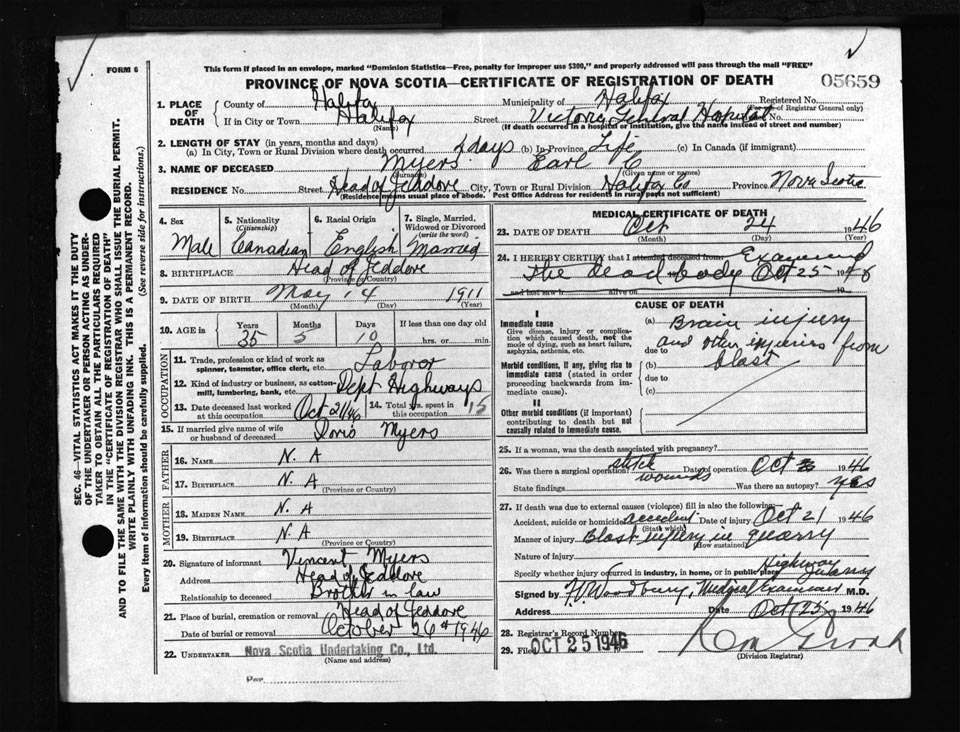 FORM 6
This form if placed in an envelope, marked "Dominion Statistics—Free, penalty for improper use $300," and properly addressed will pass through the mail "FREE"
PROVINCE OF NOVA SCOTIA—CERTIFICATE OF REGISTRATION OF DEATH 05659
1. PLACE OF DEATH County of Halifax Municipality of Halifax Registered No.
(For use of Registrar General only)
If in City or Town Halifax Street Victoria General Hospital No.
(Name) (If death occurred in a hospital or institution, give the name instead of street and number)
2. LENGTH OF STAY (in years, months and days)
(a) In City, Town or Rural Division where death occurred days (b) In Province Life (c) In Canada (if immigrant)
3. NAME OF DECEASED Myers Earl C
(Surname) (Given name or names)
RESIDENCE No. Street Head of Jeddore City, Town or Rural Division Halifax Co Province Nova Scotia
(Residence means usual place of abode. Post Office Address for residents in rural parts not sufficient)
SEC. 46—VITAL STATISTICS ACT MAKES IT THE DUTY
OF THE UNDERTAKER OR PERSON ACTING AS UNDER-
TAKER TO OBTAIN ALL THE PARTICULARS REQUIRED
IN THE "CERTIFICATE OF REGISTRATION OF DEATH"
AND TO FILE THE SAME WITH THE DIVISION REGISTRAR WHO SHALL ISSUE THE BURIAL PERMIT.
WRITE PLAINLY WITH UNFADING INK. THIS IS A PERMANENT RECORD.
Every item of information should be carefully supplied. (See reverse side for instructions.)
4. Sex Male
5. Nationality (Citizenship) Canadian
6. Racial Origin English
7. Single, Married, Widowed or Divorced (write the word) Married
8. BIRTHPLACE Head of Jeddore
(Province or Country)
9. DATE OF BIRTH May 14 1911
(Month) (Day) (Year)
10. AGE in Years 35 Months 5 Days 10 If less than one day old hrs. or min.
OCCUPATION
11. Trade, profession or kind of work as spinner, teamster, office clerk, etc. Laboror
12. Kind of industry or business, as cotton-mill, lumbering, bank, etc. Dept Highways
13. Date deceased last worked at this occupation Oct 21/46 14. Total yrs. spent in this occupation 15
15. If married give name of wife or husband of deceased Doris Myers
FATHER
16. NAME N. A
17. BIRTHPLACE N. A
(Province or Country)
MOTHER
18. MAIDEN NAME N. A
19. BIRTHPLACE N. A
(Province or Country)
20. Signature of informant Vincent Myers
Address Head of Jeddore
Relationship to deceased Brother in law
21. Place of burial, cremation or removal Head of Jeddore
Date of burial or removal October 26th 1946
22. UNDERTAKER Nova Scotia Undertaking Co., Ltd.
(Name and address)
Per
MEDICAL CERTIFICATE OF DEATH
23. DATE OF DEATH Oct 24 1946
(Month) (Day) (Year)
24. I HEREBY CERTIFY that I attended deceased from Examined
the dead body Oct 25 1946
and last saw h alive on 19
CAUSE OF DEATH
I
Immediate cause
Give disease, injury or complication which caused death, not the mode of dying, such as heart failure, asphyxia, asthenia, etc.
(a) Brain injury
and other injuries from
due to blast
Morbid conditions, if any, giving rise to immediate cause (stated in order proceeding backwards from immediate cause).
(b)
due to
(c)
II
Other morbid conditions (if important) contributing to death but not causally related to immediate cause.
25. If a woman, was the death associated with pregnancy?
26. Was there a surgical operation? stitch wounds Date of operation Oct 1946
State findings Was there an autopsy? yes
27. If death was due to external causes (violence) fill in also the following:
Accident, suicide or homicide? accident Date of injury Oct 21 1946
(State which)
Manner of injury Blast injury in quarry
(How sustained)
Nature of injury
Specify whether injury occurred in industry, in home, or in public place Highway Quarry
Signed by Woodbury, Medical Examiner M.D.
Address Date Oct 25 1946
28. Registrar's Record Number
29. Filed OCT 25 1946
(Division Registrar)